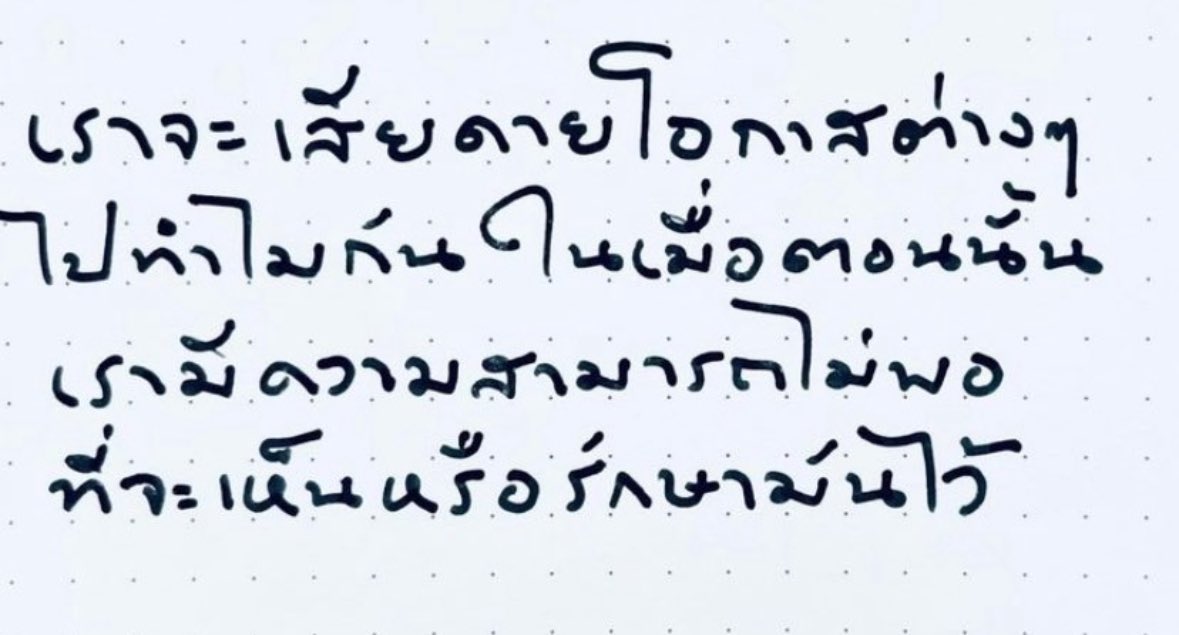 เราจะเสียดายโอกาสต่างๆ
ไปทำไมกัน ในเมื่อตอนนั้น
เรามีความสามารถไม่พอ
ที่จะเห็นหรือรักษามันไว้